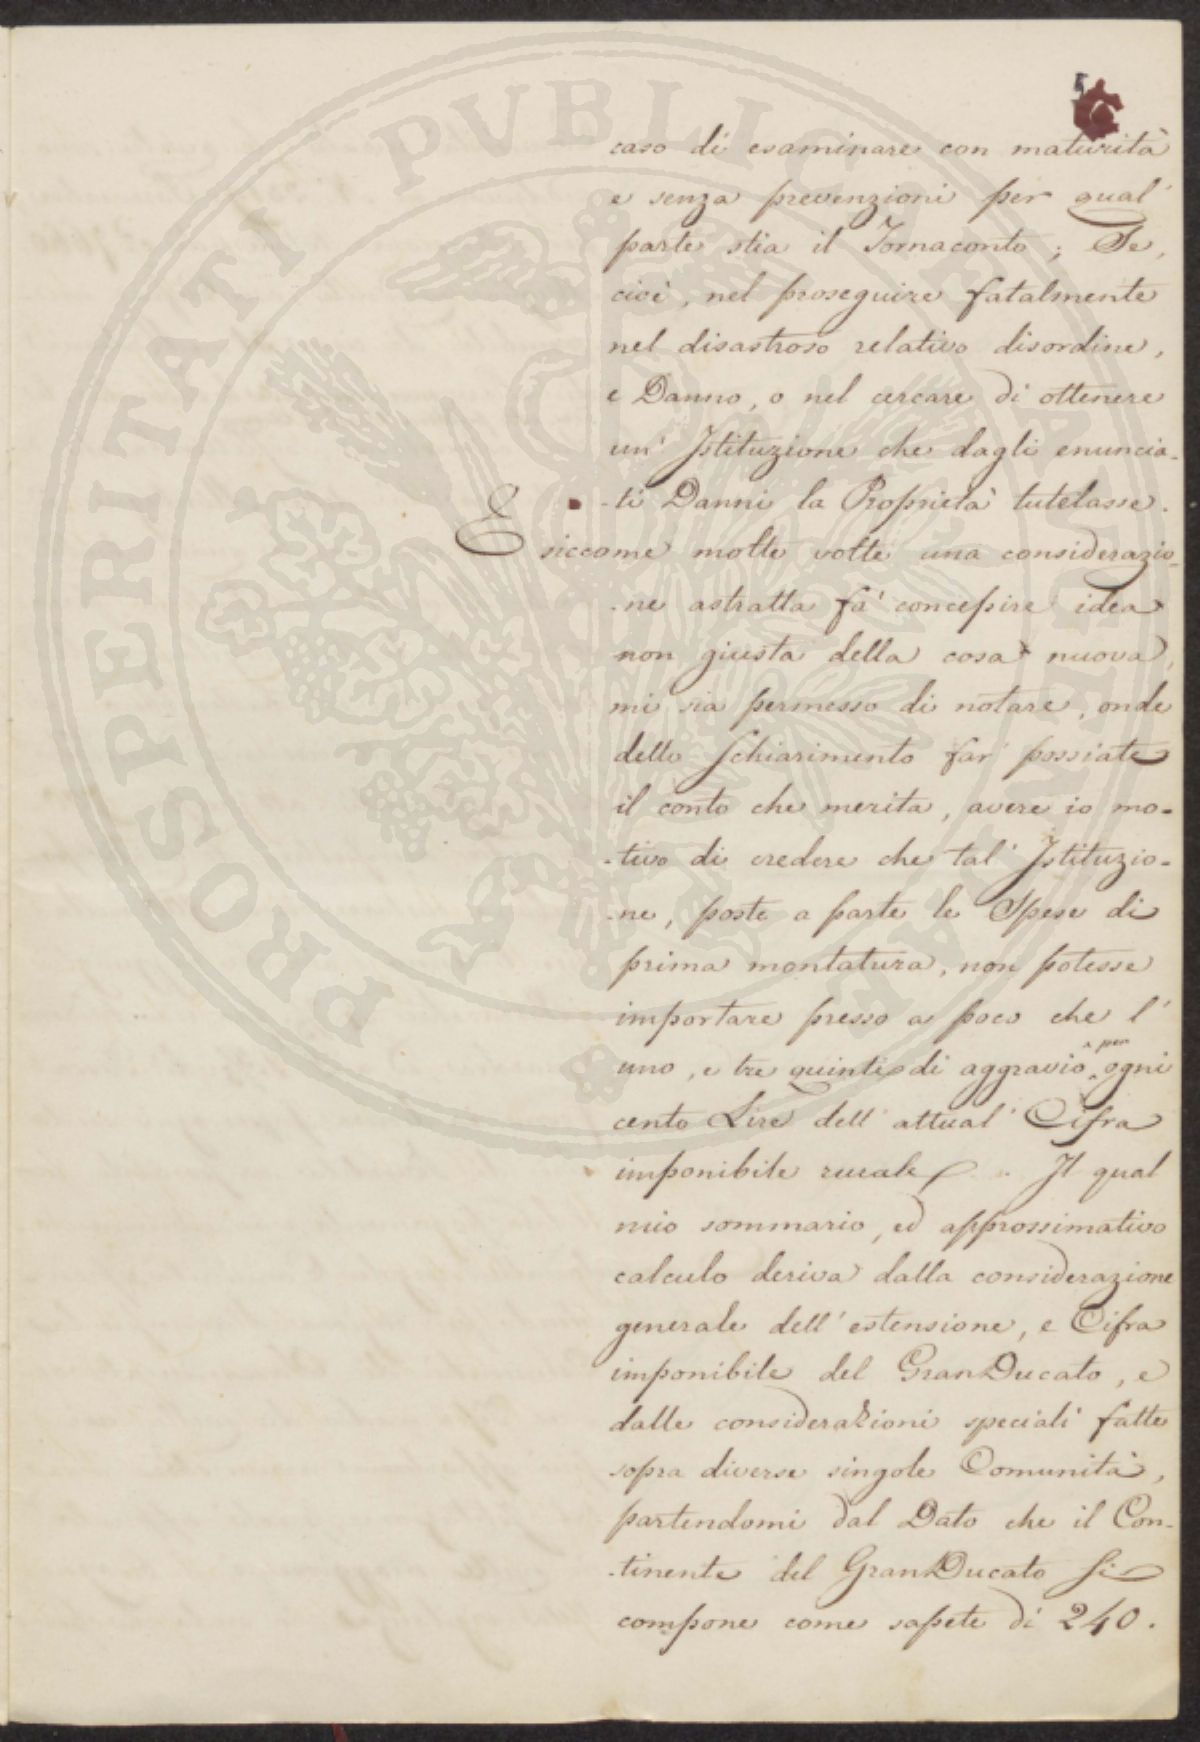 5
caso di esaminare con maturità
e senza prevenzioni per qual'
parte stia il Tornaconto; Se,
cioè, nel proseguire fatalmente
nel disastroso relativo disordine,
e Danno, o nel cercare di ottenere
un' Istituzione che dagli enuncia-
-ti Danni la Proprietà tutelasse.
E siccome molte volte una considerazio-
-ne astratta fà concepire idea
non giusta della cosa nuova,
mi sia permesso di notare, onde
dello Schiarimento far possiate
il conto che merita, avere io mo-
-tivo di credere che tal' Istituzio-
-ne, poste a parte le Spese di
prima montatura, non potesse
importare presso a poco che l'
uno, e tre quinti di aggravio per ogni
cento Lire dell' attual' Cifra
imponibile rurale. Il qual
mio sommario, ed approssimativo
calcolo deriva dalla considerazione
generale dell' estensione, e Cifra
imponibile del GranDucato, e
dalle considerazioni speciali fatte
sopra diverse singole Comunità,
partendomi dal Dato che il Con-
-tinente del GranDucato Si
compone come sapete di 240.
PROSPERITATI PVBLICAE AVGENDAE